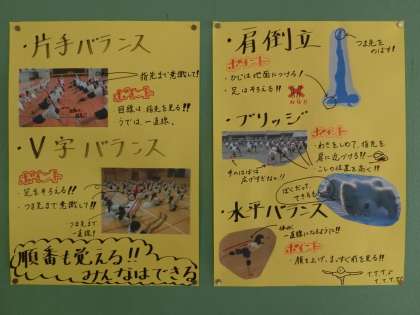 ・片手バランス
指先まで意識して!
ポイント
目線は、指先を見る!!
うでは、一直線。
・V字バランス
ポイント
・足をそろえる!!
・つま先まで意識して!!
つま先まで
一直線!
順番も覚える!!
みんなはできる
・肩倒立
ポイント
・ひじは地面につけろ!
・足はそろえる!!
つま先を
のばす!
・ブリッジ
ポイント
わきをしめて、指先を
肩に近づける!!
こしの位置を高く!!
手のはばは
広げすぎない!!
ぼくだって
できるも
・水平バランス
体は
一直線になるように!!
ポイント
・顔を上げ、まっすぐ前を見る!